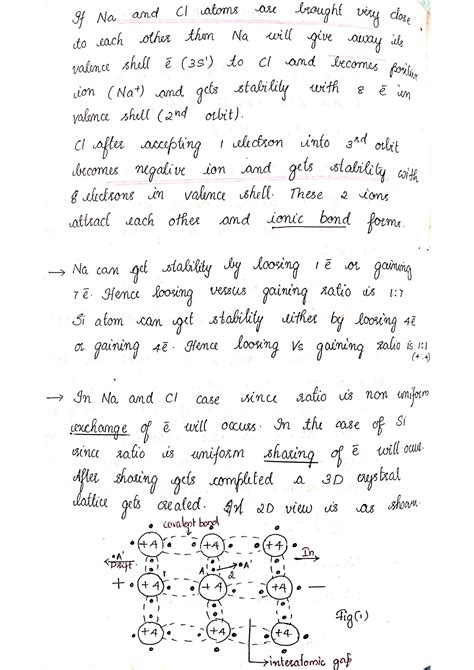 If Na and Cl atoms are brought very close
to each other then Na will give away its
valence shell ē (3S¹) to Cl and becomes positive
ion (Na⁺) and gets stability with 8 ē in
valence shell (2nd orbit).
Cl after accepting 1 electron into 3rd orbit
becomes negative ion and gets stability with
8 electrons in valence shell. These 2 ions
attract each other and ionic bond forms.
→ Na can get stability by loosing 1 ē or gaining
7 ē. Hence loosing versus gaining ratio is 1:7
Si atom can get stability either by loosing 4ē
or gaining 4ē. Hence loosing Vs gaining ratio is 1:1
(4:4)
→ In Na and Cl case since ratio is non uniform
exchange of ē will occurs. In the case of Si
since ratio is uniform sharing of ē will occur.
After sharing gets completed a 3D crystal
lattice gets created. 2D view is as shown.
covalent bond
+4 +4 +4
A' A' In
Drift A 2
+ +4 +4 +4 −
Fig(1)
+4 +4 +4
→ interatomic gap